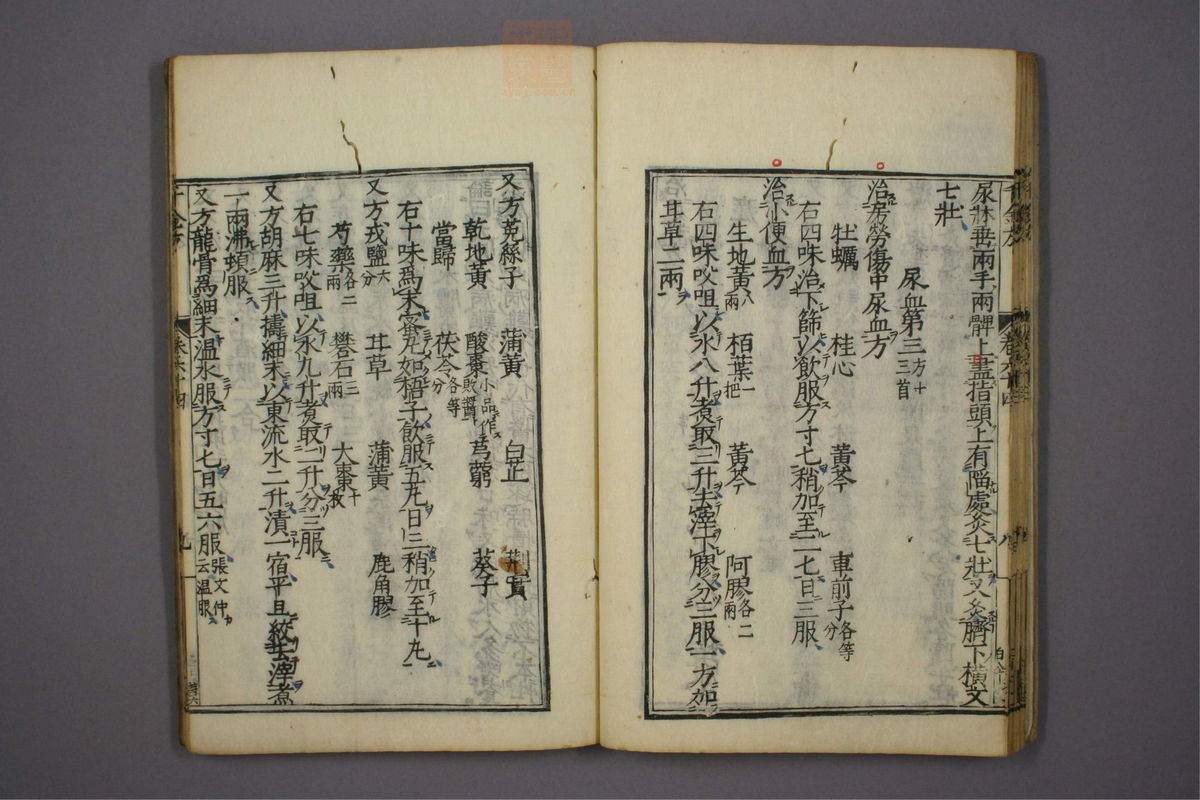 尿牀垂兩手兩髀上盡指頭上有陷處灸七壯又灸臍下橫文
七壯
尿血第三方十三首
治房勞傷中尿血方
牡蠣 桂心 黃芩 車前子各等分
右四味治下篩以飲服方寸匕稍加至二匕日三服
治小便血方
生地黃八兩 栢葉一把 黃芩 阿膠各二兩
右四味㕮咀以水八升煑取三升去滓下膠分三服一方加
甘草二兩
千金方 卷六十四 九
又方菟絲子 蒲黃 白芷 荊實
乾地黃 酸棗小品作敗醬 芎藭 葵子
當歸 茯苓各等分
右十味爲末蜜丸如梧子飲服五丸日三稍加至十丸
又方戎鹽六分 甘草 蒲黃 鹿角膠
芍藥各二兩 礬石三兩 大棗十枚
右七味㕮咀以水九升煑取二升分三服
又方胡麻三升擣細末以東流水二升漬一宿平旦絞去滓煑
一兩沸頓服
又方龍骨爲細末溫水服方寸匕日五六服張文仲云溫服